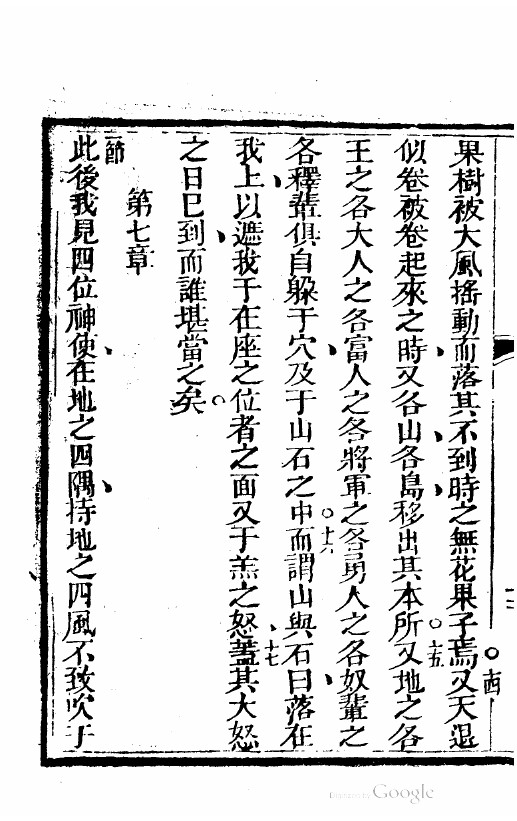 果樹被大風搖動而落其不到時之無花果子焉○十四又天退
似卷被卷起來之時、又各山各島、移出其本所○十五又地之各
王之各大人之各富人之各將軍之各勇人之各奴輩之
各釋輩、俱自躱于穴、及于山石之中○十六而謂山與石曰、落在
我上、以遮我于在座之位者之面、又于羔之怒、十七蓋其大怒
之日巳到、而誰堪當之矣○
第七章
節此後我見四位神使、在地之四隅、持地之四風、不致吹于
Digitized by Google